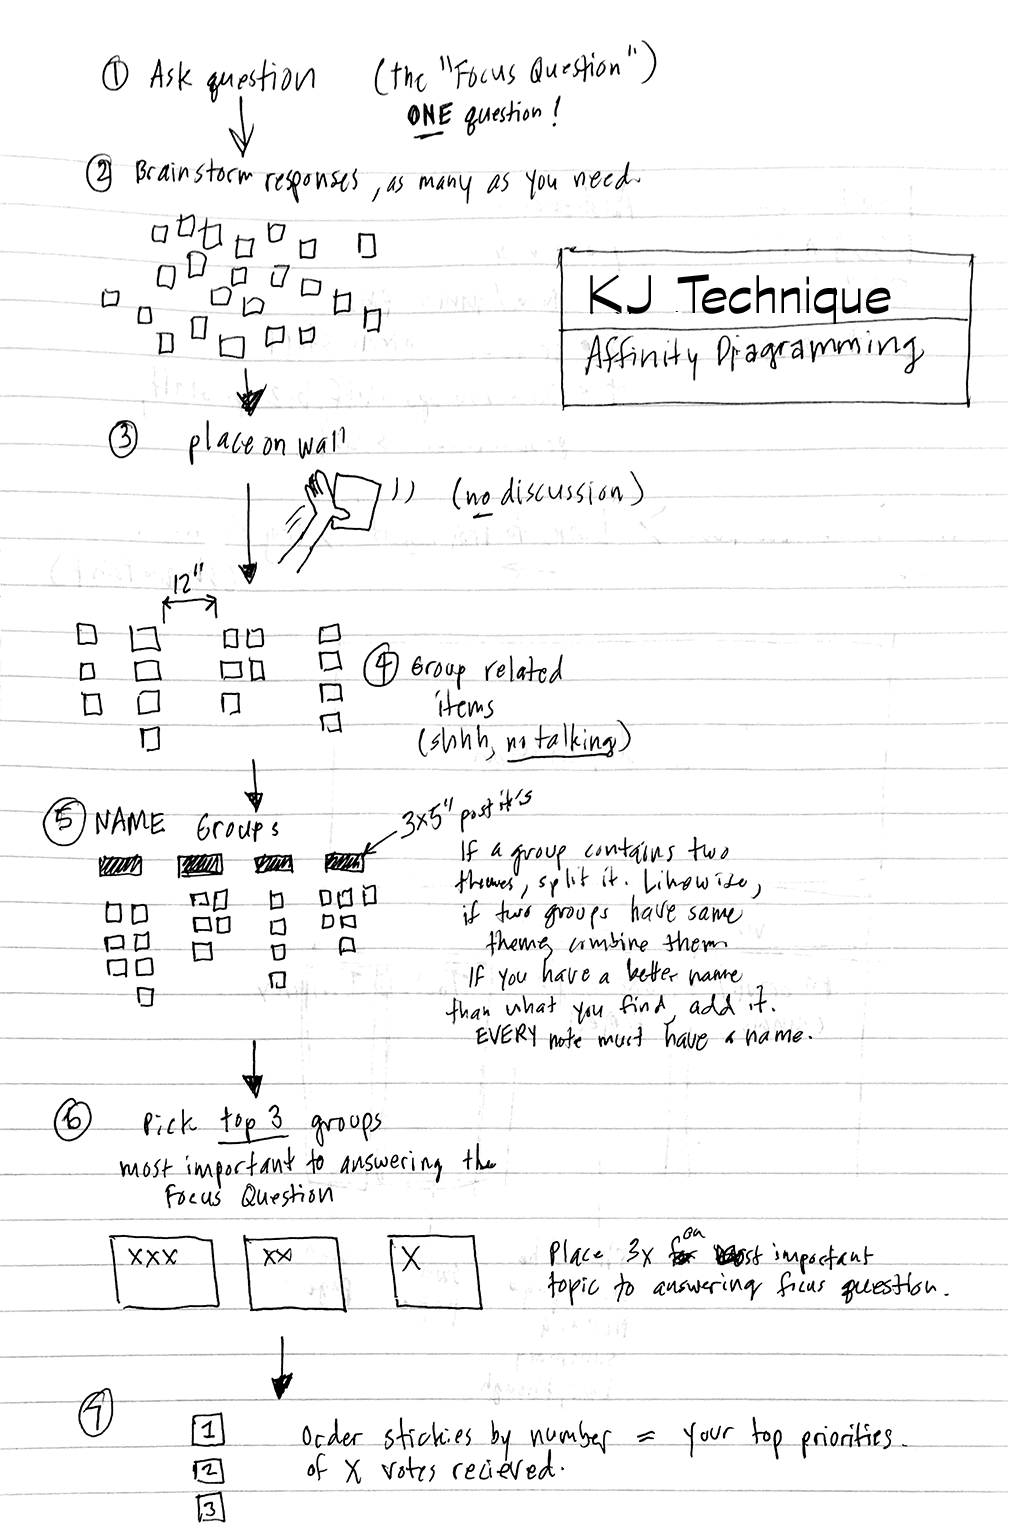 ① Ask question (the "Focus Question")
ONE question!
② Brainstorm responses, as many as you need.
KJ Technique
Affinity Diagramming
③ place on wall
(no discussion)
12"
④ Group related
items
(shhh, no talking)
⑤ NAME Groups
3x5" post it's
If a group contains two
themes, split it. Likewise,
if two groups have same
theme, combine them
If you have a better name
than what you find, add it.
EVERY note must have a name.
⑥ Pick top 3 groups
most important to answering the
Focus Question
XXX XX X
Place 3x on most important
topic to answering focus question.
⑦
1 Order stickies by number = your top priorities.
2 of X votes recieved.
3